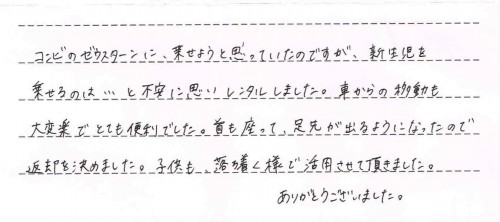 コンビのゼウスターンに、乗せようと思っていたのですが、新生児を
乗せるのは…と不安に思いレンタルしました。車からの移動も
大変楽でとても便利でした。首も座って、足先が出るようになったので
返却を決めました。子供も、落ち着く様で活用させて頂きました。
ありがとうございました。